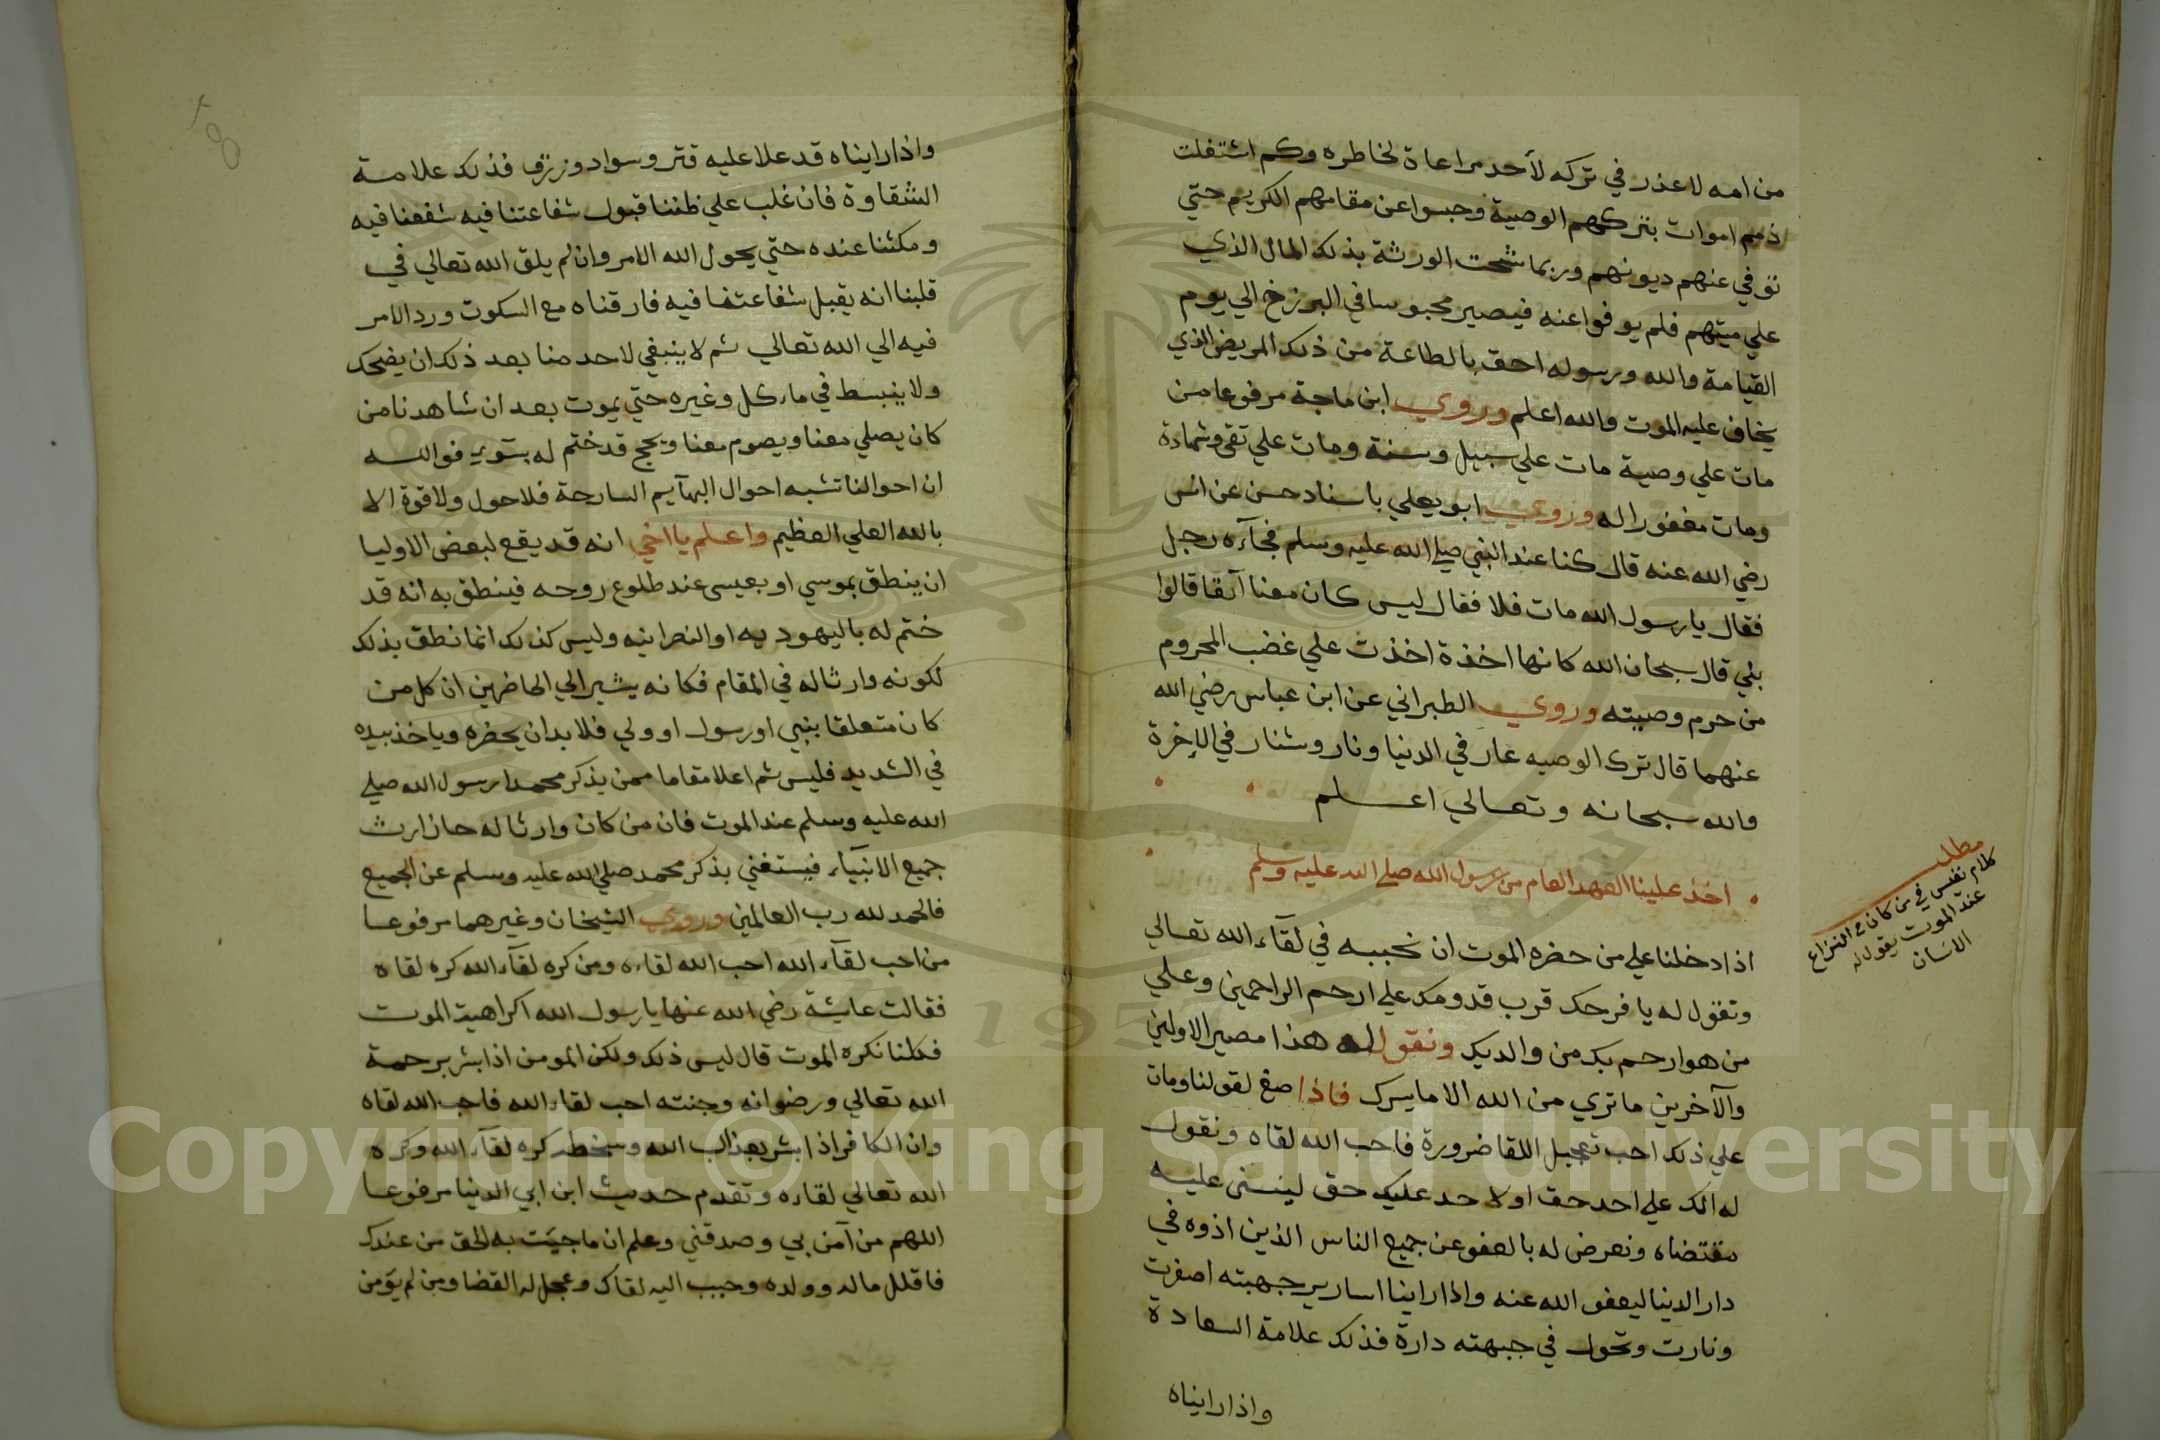 من امه لا عذر في تركه لأحد مراعاة لخاطره وكم اشتغلت
ذمم اموات بتركهم الوصية وحبسوا عن مقامهم الكريم حتي
توفي عنهم ديونهم وربما شحت الورثة بذلك المال الذي
علي ميتهم فلم يوفوا عنه فيصير محبوسا في البرزخ الي يوم
القيامة والله ورسوله احق بالطاعة من ذلك المريض الذي
يخاف عليه الموت والله اعلم وروي ابن ماجة مرفوعا من
مات علي وصية مات علي سبيل وسنة ومات علي تقي وشهادة
ومات مغفورا له وروي ابو يعلي باسناد حسن عن انس
رضي الله عنه قال كنا عند النبي صلي الله عليه وسلم فجآءه رجل
فقال يا رسول الله مات فلا فقال ليس كان معنا آنفا قالوا
بلي قال سبحان الله كانها اخذة اخذت علي غضب المحروم
من حرم وصيته وروي الطبراني عن ابن عباس رضي الله
عنهما قال ترك الوصيه عار في الدنيا ونار وشنار في الاخرة
والله سبحانه وتعالي اعلم
اخذ علينا العهد العام من رسول الله صلي الله عليه وسلم
اذا دخلنا علي من حضره الموت ان نحببه في لقآء الله تعالي
ونقول له يا فرحك قرب قدومك علي ارحم الراحمين وعلي
من هو ارحم بك من والديك ونقول له هذا مصير الاولين
والآخرين ما تري من الله الا ما يسرك فاذا صغ لقولنا ومات
علي ذلك احب تعجيل اللقا ضرورة فاحب الله لقاه ونقول
له الك علي احد حق او لاحد عليك حق لينسني عليه
مقتضاه ونعرض له بالعفو عن جميع الناس الذين اذوه في
دار الدنيا ليعفو الله عنه واذا راينا اسارير جبهته اصفرت
ونارت وتحول في جبهته دارة فذلك علامة السعادة
واذا رايناه
مطلب
كلام نفس في من كان في النزاع
عند الموت يقول له
الانسان
٢٥٥
واذا رايناه قد علا عليه قتر وسواد وزرق فذلك علامة
الشقاوة فان غلب علي ظننا قبول شفاعتنا فيه شفعنا فيه
ومكثنا عنده حتي يحول الله الامر وان لم يلق الله تعالي في
قلبنا انه يقبل شفاعتنا فيه فارقناه مع السكوت ورد الامر
فيه الي الله تعالي ثم لا ينبغي لاحد منا بعد ذلك ان يضحك
ولا ينبسط في ماءكل وغيره حتي يموت بعد ان شاهدنا من
كان يصلي معنا ويصوم معنا ويحج قد ختم له بسوء فوالله
ان احوالنا تشبه احوال البهآيم السارحة فلا حول ولا قوة الا
بالله العلي العظيم واعلم يا اخي انه قد يقع لبعض الاوليا
ان ينطق بموسي او بعيسي عند طلوع روحه فينطق به انه قد
ختم له باليهوديه او النصرانيه وليس كذلك انما نطق بذلك
لكونه وارثا له في المقام فكانه يشير الي الحاضرين ان كل من
كان متعلقا بنبي او رسول او ولي فلا بد ان يحضره وياخذ بيده
في الشديد فليس ثم اعلا مقاما ممن يذكر محمدا رسول الله صلي
الله عليه وسلم عند الموت فان من كان وارثا له حاز ارث
جميع الانبيآء فيستغني بذكر محمد صلي الله عليه وسلم عن الجميع
فالحمد لله رب العالمين وروي الشيخان وغيرهما مرفوعا
من احب لقآء الله احب الله لقاءه ومن كره لقآء الله كره لقاه
فقالت عايشة رضي الله عنها يا رسول الله اكراهية الموت
فكلنا نكره الموت قال ليس ذلك ولكن المومن اذا بشر برحمة
الله تعالي ورضوانه وجنته احب لقاء الله فاحب الله لقاه
وان الكافر اذا بشر بعذاب الله وسخطه كره لقآء الله وكره
الله تعالي لقاءه وتقدم حديث ابن ابي الدنيا مرفوعا
اللهم من آمن بي وصدقني وعلم ان ما جيت به الحق من عندك
فاقلل ماله وولده وحبب اليه لقاك وعجل له القضا ومن لم يؤمن
Copyright © King Saud University